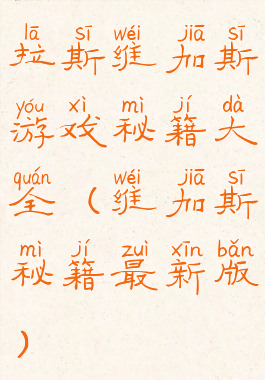 lā sī wéi jiā sī
拉斯维加斯
yóu xì mì jí dà
游戏秘籍大
quán wéi jiā sī
全（维加斯
mì jí zuì xīn bǎn
秘籍最新版
）